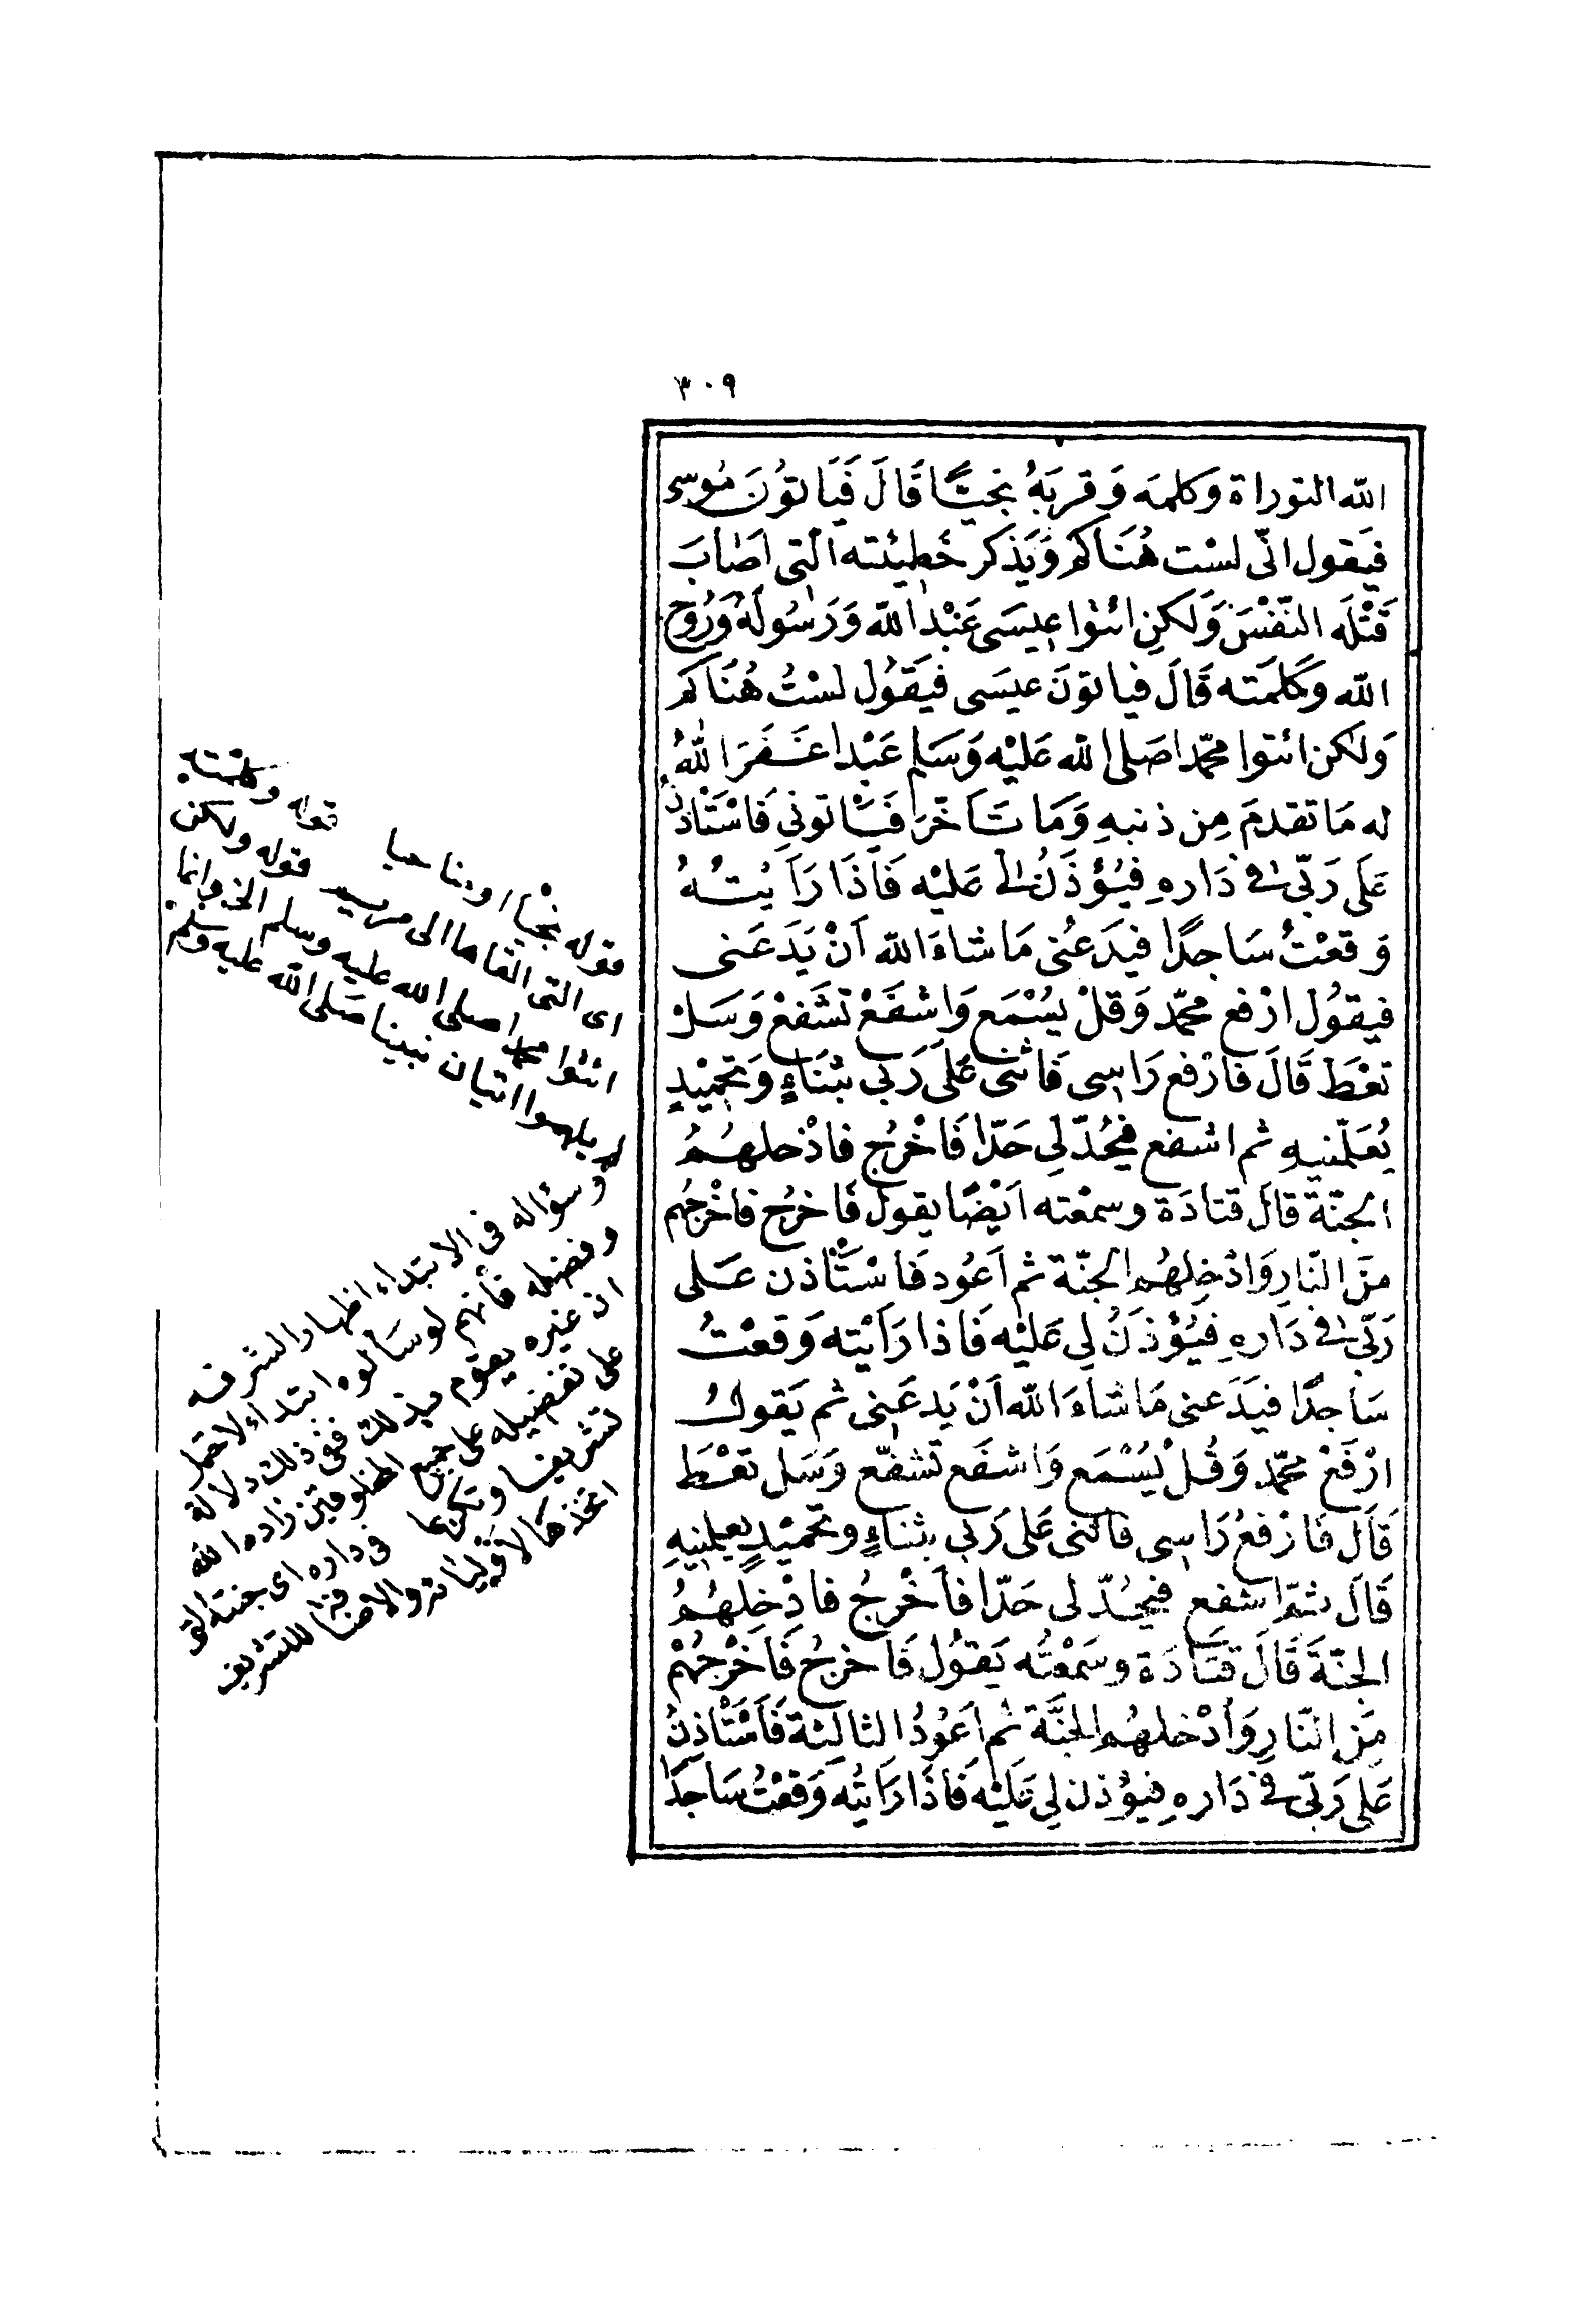 ٣٠٩
الله التوراة وكلمه وَقربَهُ نجيًّا قَالَ فَيَاتوُنَ مُوسى
فيَقول انّى لسْت هُنَاكم وَيَذكر خَطِيئته الّتى اصَابَ
قَتْلَه النّفْسَ وَلكنِ ائتوا عِيسَى عَبْد الله وَرَسُولَهُ وَرُوح
الله وَكَلمَته قَالَ فياتوْنَ عيسَى فيَقُول لسْتُ هُنَاكم
وَلكن ائتوا محمّدا صَلى الله عَليْه وَسَلم عَبْدا غَفَرَ اللهُ
له مَا تقدمَ مِن ذنبهِ وَمَا تَاخّرَ فَيَاتونى فَاسْتَاذنُ
عَلَى رَبّى فى دَارهِ فيُؤذَنُ لى عَليْه فَاذَا رَايْتُهُ
وَقعْتُ سَاجدًا فيدَعُنى مَا شاءَ الله اَنْ يَدَعَنى
فيقوُل ارْفع محمّد وَقلْ يُسْمَع وَاشفَعْ تشَفعْ وَسَلْ
تعْطَ قَالَ فارْفع رَاسِى فَاثنى عَلَى رَبى بثنَاءٍ وَتحميْدٍ
يُعَلّمنيهِ ثم اشفع فيَحُدّ لى حَدّا فَاخْرُج فادْخلهُمُ
الجنّة قالَ قتادَة وسمعْته ايْضًا يقول فَاخرُج فاخْرجُهم
منَ النّارِ وَادْخِلهُم الجنّة ثم اَعُود فَاسْتَاذن عَلى
رَبّى فى دَارهِ فيُؤذَنُ لى عَليْه فَاذا رَايْته وَقعْتُ
سَاجدًا فيَدَعنى مَا شاءَ الله اَنْ يَدعَنِى ثم يَقول
ارْفَعْ محمّد وَقُلْ يُسْمَع وَاشفَع تشفّع وَسَل تعْطَ
قَالَ فَارْفعُ رَاسِى فاثنى عَلى رَبى بثناءٍ وتحميْدٍ يعلمنِيهِ
قَالَ ثمّ اشفع فيحُدّ لى حَدّا فأخْرُجُ فادْخِلهُمُ
الجنّةَ قَالَ قتَادَة وسَمعْتُه يَقوُل فَاخرجُ فَاخْرجُهُمْ
مِنَ النّارِ وَاُدْخلهُم الجنَّة ثم اَعُودُ الثالثة فَاَسْتَاذِنُ
عَلى رَبّى فى دَارهِ فيؤذن لِى عَليْه فَاذَا رَايتُه وَقعْتُ سَاجدًا
قوله نجيا اى مناجيا قوله وكلمته
اى التى القاها الى مريم قوله ولكن
ائتوا محمدا صلى الله عليه وسلم الخ وانما
لم يلهموا اتيان نبينا صَلى الله عليه وسَلم
وسؤاله فى الابتداء اظهارا لشرفه
وفضله فانهم لو سَالوه ابتداء لاحتمل
ان غيره يقوم بذلك ففى ذلك دلالة
على تفضيله على جميع المخلوقين زاده الله
تشريفا وتكريما فى داره اى جنته التى
اتخذها لاوليائه والاضافة للتشريف